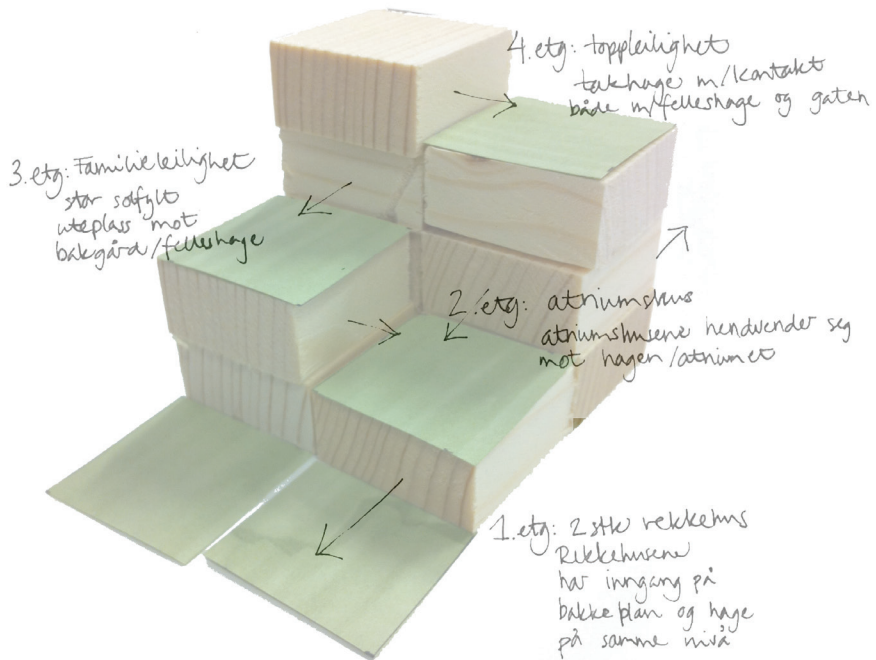 4. etg: toppleilighet
takhage m/kontakt
både m/felleshage og gaten
3. etg: Familieleilighet
stor solfylt
uteplass mot
bakgård/felleshage
2. etg: atriumshus
atriumshusene hendvender seg
mot hagen/atriumet
1. etg: 2 stk rekkehus
Rekkehusene
har inngang på
bakkeplan og hage
på samme nivå